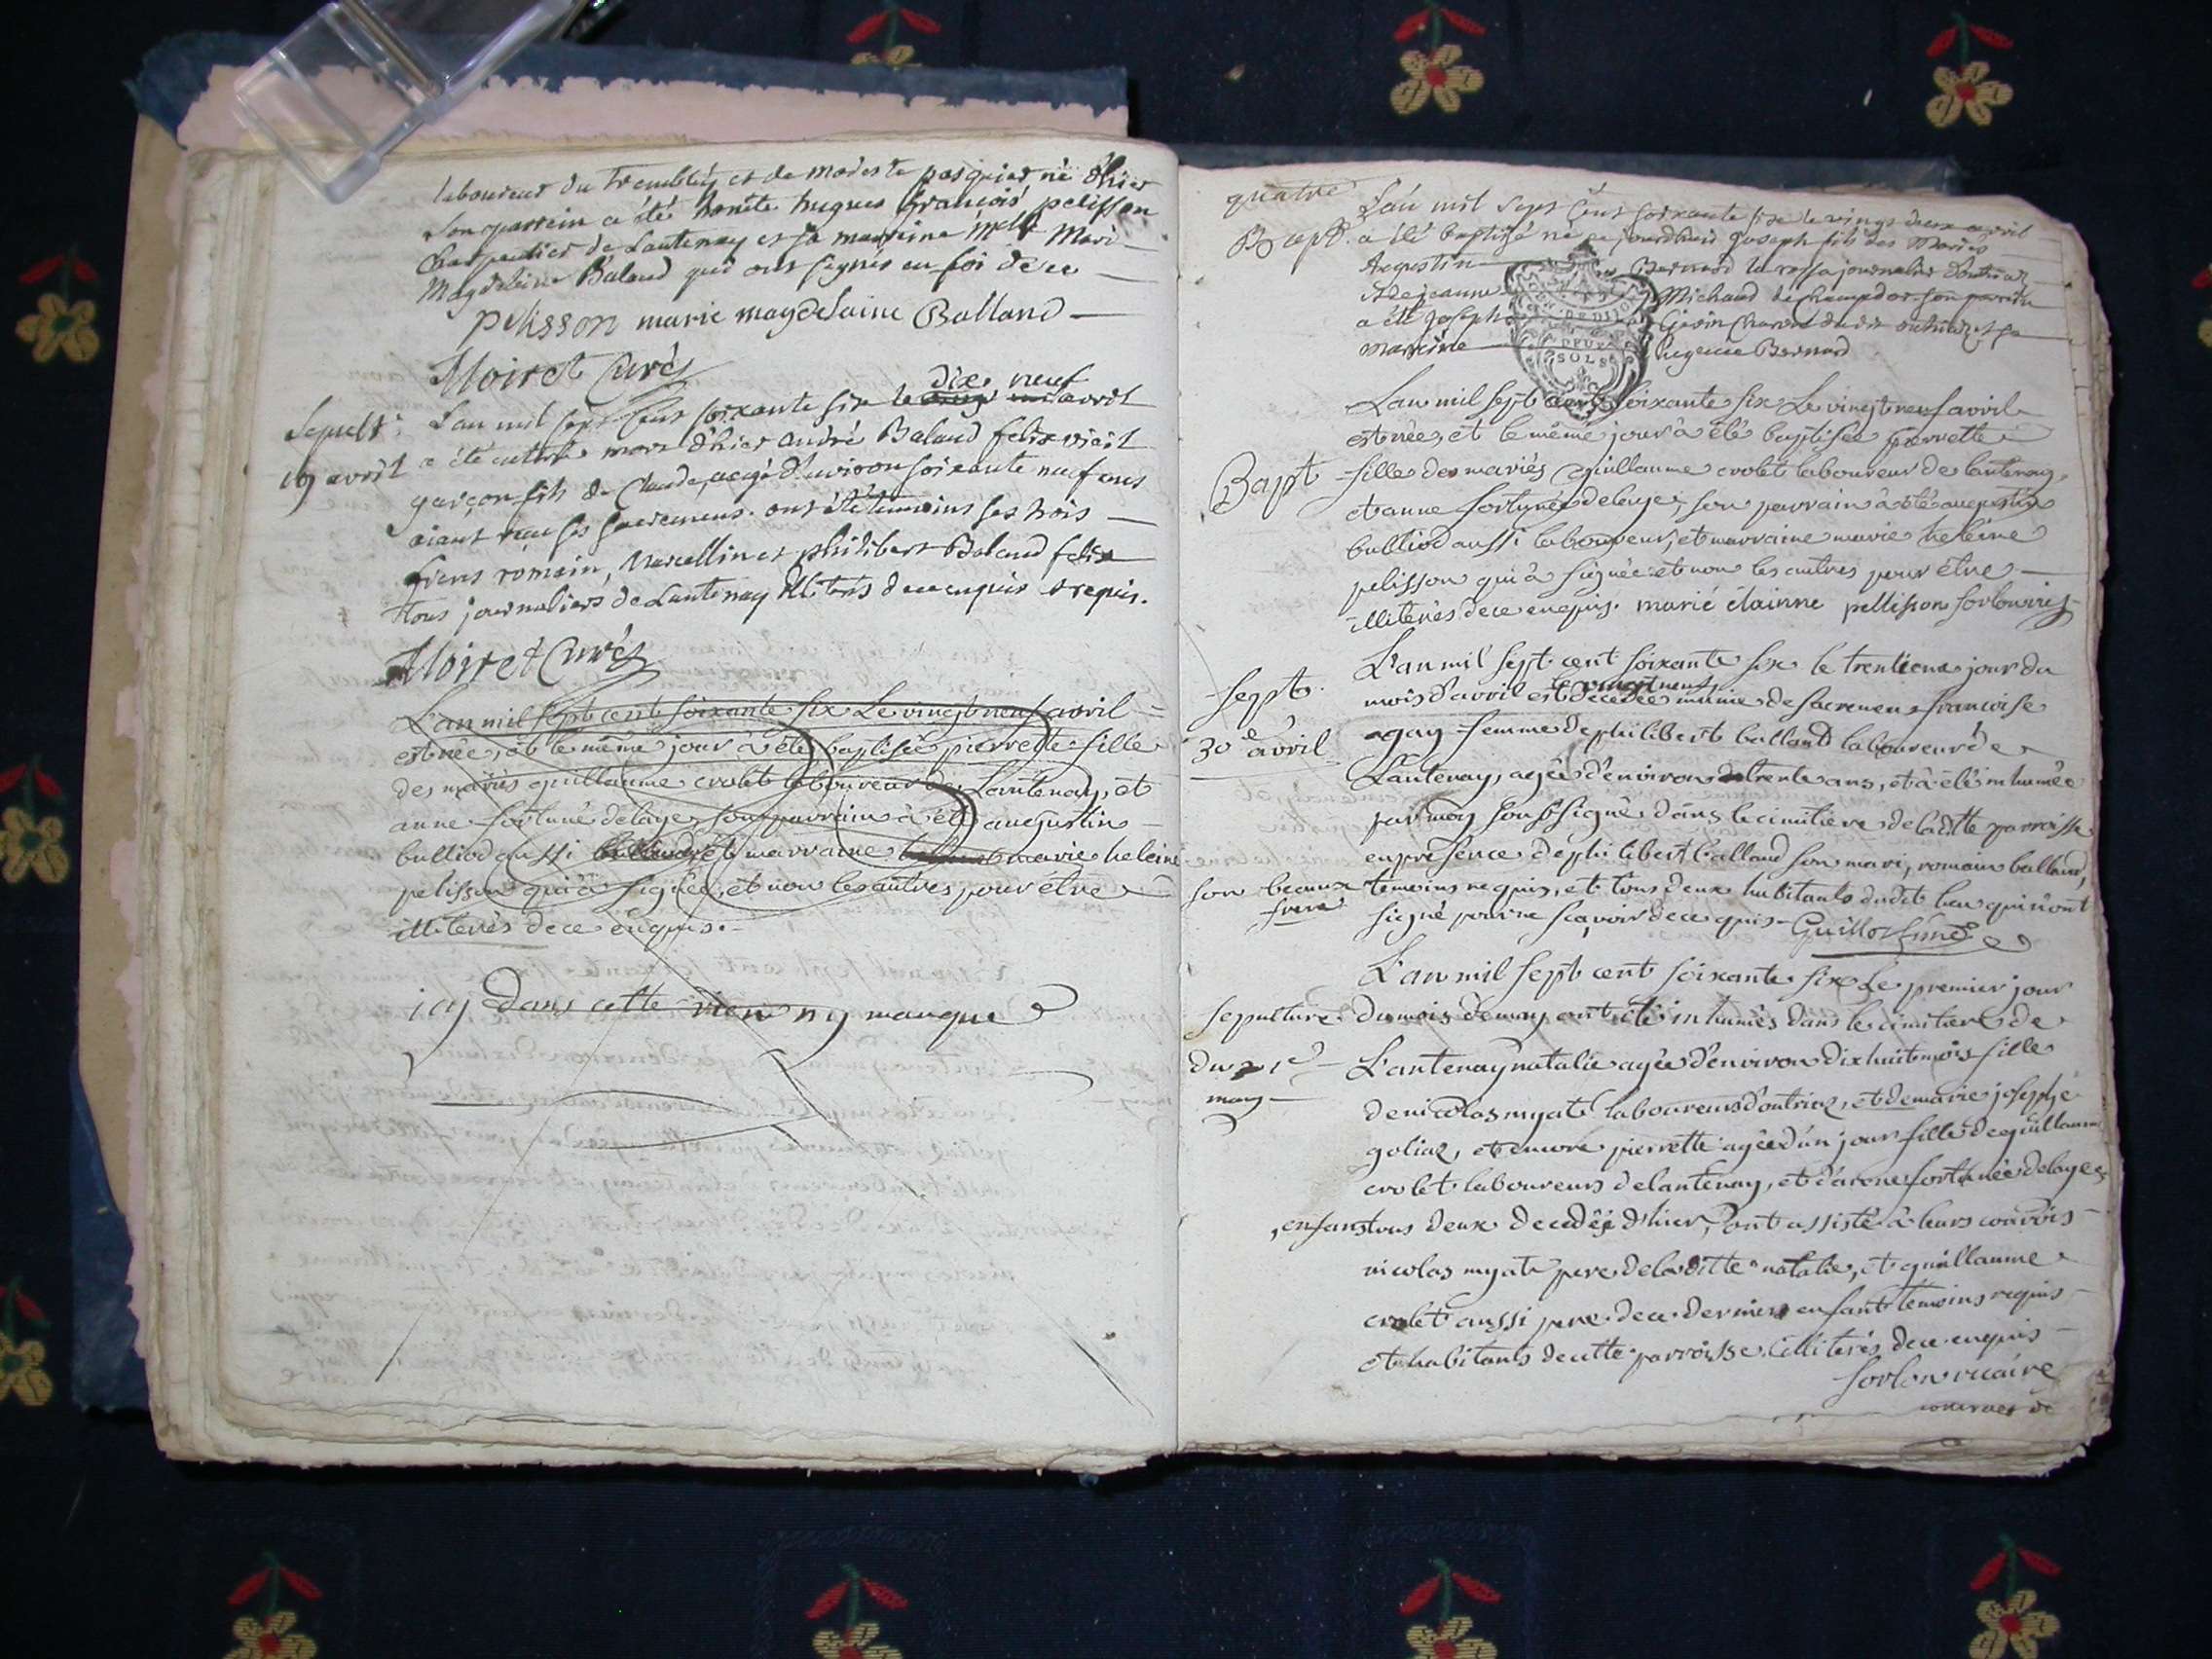 laboureur du trembley et de modeste pasquier né d'hier
son parrein a été honête hugues françois pelisson
charpentier de Lantenay et sa marreine Melle Marie
Magdeleine Baland qui ont signés en foi de ce
pelisson marie magdelaine Balland
Moiret Curé
Sepult:
19 avril
L'an mil sept Cent soixante six le dix neuf avril
a été enterré mort d'hier andré Baland felix vieil
garçon fils de Claude, aegé d'environ soixante neuf ans
aiant reçu ses sacremens. ont été temoins ses trois
freres romain, Marcellin et philibert Baland felix
tous journaliers de Lantenay illiterés de ce enquis & requis.
Moiret Curé
L'an mil sept cent soixante six Le vingt neuf avril
est née, et le même jour à été baptisée pierrette fille
des mariés guillaume crolet laboureur de Lantenay, et
anne fortuné delaye, son parrain à été augustin
bulliod aussi et marraine marie heleine
pelisson qui à signée, et non les autres pour être
illiterés de ce enquis.
icy dans cette rien ny manque
quatre
Bapt.
L'an mil sept Cent soixante six le vingt deux avril
a été baptisé né ce jourdhuid joseph fils des Mariés
Augustin Bernard la rossa journalier d'outriaz
& de jeanne Michaud de Champdor son parrein
a été joseph Givin Charon dudit outriaz et sa
marreine hugeuee Bernard
DEUX
SOLS
Bapt
L'an mil sept cent soixante six Le vingt neuf avril
est née, et le même jour à été baptisée pierrette
fille des mariés guillaume crolet laboureur de lantenay,
et anne fortunée delaye, son parrain à été augustin
bulliod aussi laboureur, et marraine marie heleine
pelisson qui à signée et non les autres pour être
illiterés de ce enquis. marié élainne pellisson sorlou vic
sept.
30e avril
L'an mil sept cent soixante six le trentieme jour du
mois d'avril est decedée le vingt neuf munie de sacremens francoise
agay femme de philibert balland laboureur de
Lantenay, agée d'environ trente ans, et à été inhumée
par moy soussigné dans le cimitiere de laditte parroisse
en presence de philibert balland son mari, romain balland,
son beaux frere temoins requis, et tous deux habitants dudit lieu qui n'ont
signé pour ne scavoir de ce quis Guillot Curé
sepulture
du 1er
may
L'an mil sept cent soixante six Le premier jour
du mois de may ont été inhumés dans le cimitiere de
Lantenay natalie agée d'environ dix huit mois fille
de nicolas myate laboureur d'outriaz, et de marie josephe
goliaz, et encore pierrette agée d'un jour fille de guillaume
crolet laboureurs de lantenay, et d'anne fortunée delaye
, enfans tous deux decedés d'hier, ont assisté à leurs convois
nicolas myate pere de laditte natalie, et guillaume
crolet aussi pere de ce dernier enfant temoins requis
et habitants de cette parroisse illiterés de ce enquis
sorlou vicaire